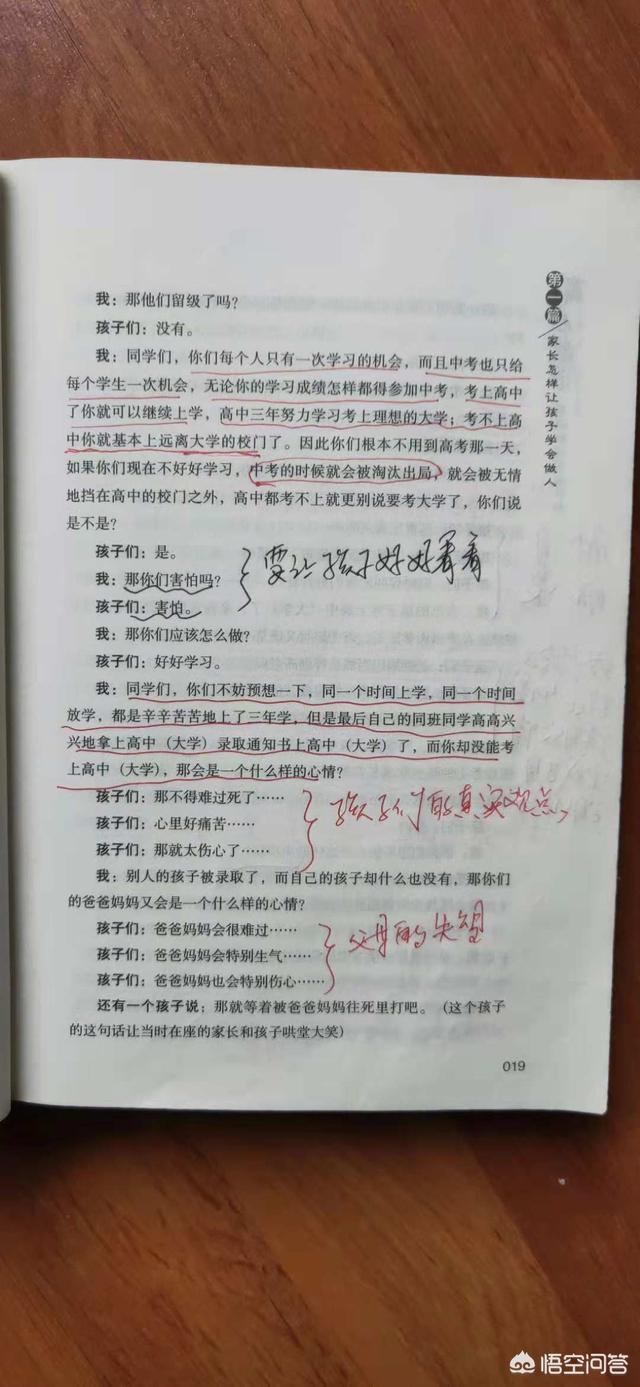 我：那他们留级了吗？
孩子们：没有。
我：同学们，你们每个人只有一次学习的机会，而且中考也只给
每个学生一次机会，无论你的学习成绩怎样都得参加中考，考上高中
了你就可以继续上学，高中三年努力学习考上理想的大学；考不上高
中你就基本上远离大学的校门了。因此你们根本不用到高考那一天，
如果你们现在不好好学习，中考的时候就会被淘汰出局，就会被无情
地挡在高中的校门之外，高中都考不上就更别说要考大学了，你们说
是不是？
孩子们：是。
我：那你们害怕吗？
孩子们：害怕。
要让孩子好好看看
我：那你们应该怎么做？
孩子们：好好学习。
我：同学们，你们不妨预想一下，同一个时间上学，同一个时间
放学，都是辛辛苦苦地上了三年学，但是最后自己的同班同学高高兴
兴地拿上高中（大学）录取通知书上高中（大学）了，而你却没能考
上高中（大学），那会是一个什么样的心情？
孩子们：那不得难过死了……
孩子们：心里好痛苦……
孩子们：那就太伤心了……
孩子们的真实观点
我：别人的孩子被录取了，而自己的孩子却什么也没有，那你们
的爸爸妈妈又会是一个什么样的心情？
孩子们：爸爸妈妈会很难过……
孩子们：爸爸妈妈会特别生气……
孩子们：爸爸妈妈也会特别伤心……
父母的失望
还有一个孩子说：那就等着被爸爸妈妈往死里打吧。（这个孩子
的这句话让当时在座的家长和孩子哄堂大笑）
019
第一篇
家长怎样让孩子学会做人
悟空问答